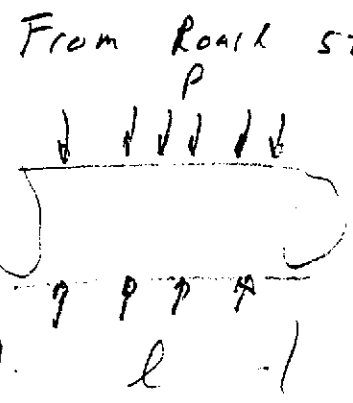 From Roark
P
l